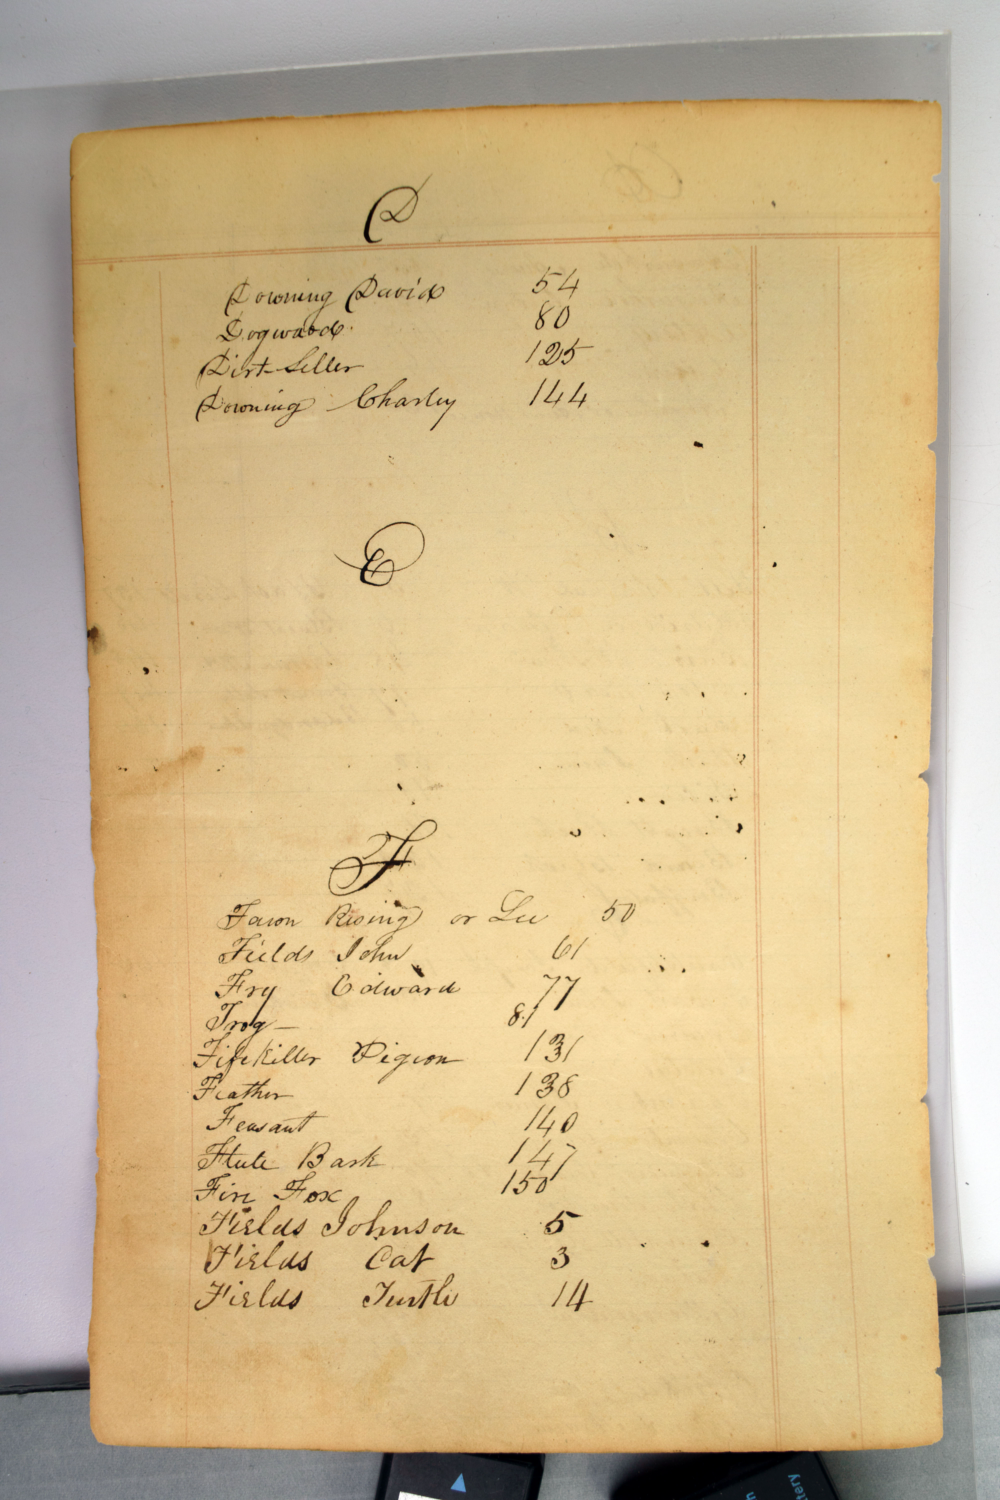 D
Downing David 54
Dogwood 80
Dirt-Seller 125
Downing Charley 144
E
F
Fawn Rising or Lee 50
Fields John 61
Fry Edward 77
Frog 81
Killer Pigeon 131
Feather 138
Feasant 140
Flute Bark 147
Fire Fox 150
Fields Johnson 5
Fields Cat 3
Fields Turtle 14
tery